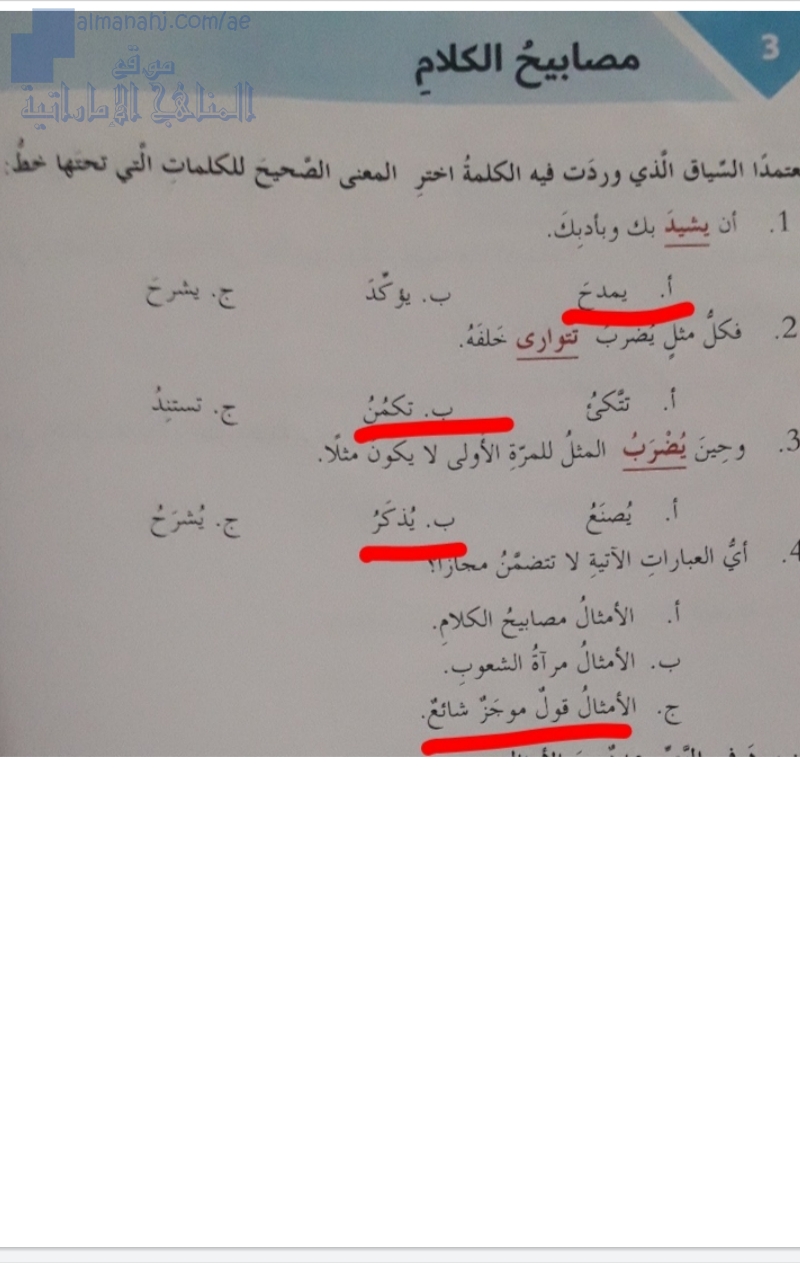 almanahj.com/ae
موقع
المناهج الإماراتية
3
مصابيحُ الكلامِ
عتمدًا السّياق الّذي وردَت فيه الكلمةُ اختر المعنى الصّحيحَ للكلماتِ الّتي تحتَها خطٌّ:
1. أن يشيدَ بك وبأدبِكَ.
أ. يمدحَ ب. يؤكِّدَ ج. يشرحَ
2. فكلُّ مثلٍ يُضربُ تتوارى خَلفَهُ.
أ. تتَّكئُ ب. تكمُنُ ج. تستنِدُ
3. وحِينَ يُضْرَبُ المثلُ للمرّةِ الأولى لا يكونُ مثلًا.
أ. يُصنَعُ ب. يُذكَرُ ج. يُشرَحُ
4. أيُّ العباراتِ الآتيةِ لا تتضمَّنُ مجازًا؟
أ. الأمثالُ مصابيحُ الكلامِ.
ب. الأمثالُ مرآةُ الشعوبِ.
ج. الأمثالُ قولٌ موجَزٌ شائعٌ.